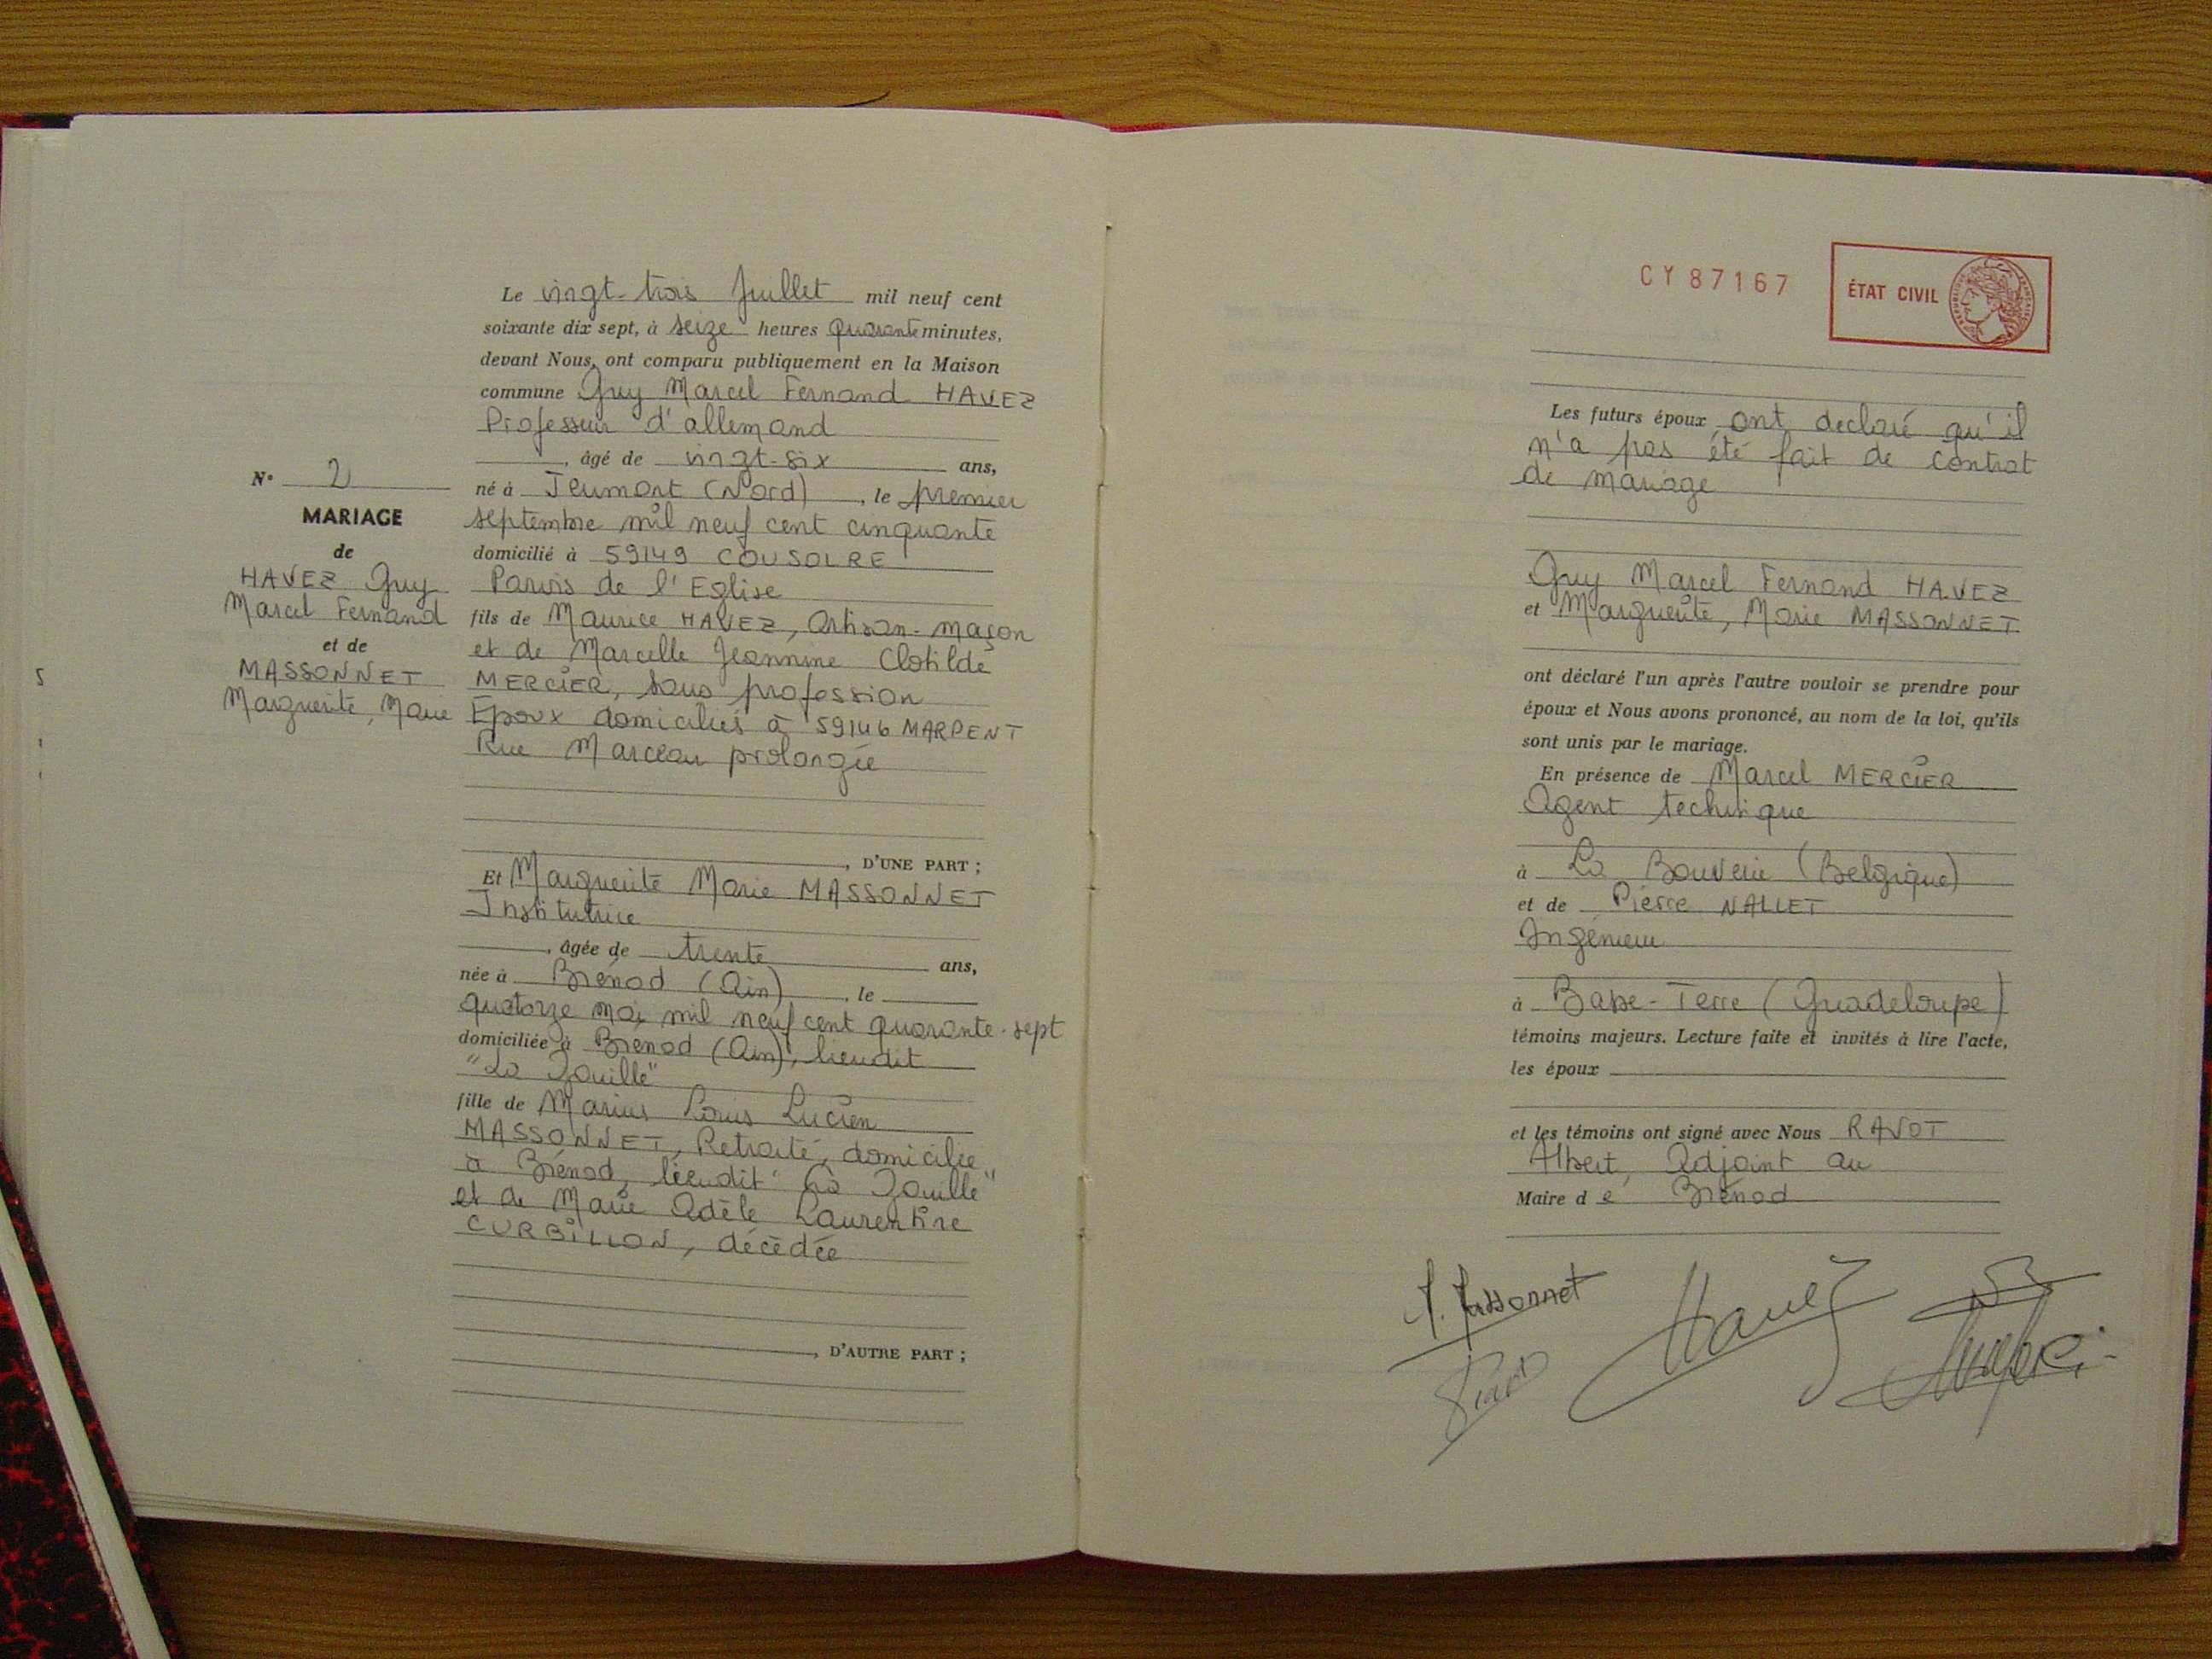 Le vingt-trois Juillet mil neuf cent
soixante dix sept, à seize heures quarante minutes,
devant Nous, ont comparu publiquement en la Maison
commune Guy Marcel Fernand HAVEZ
Professeur d'allemand
, âgé de vingt-six ans,
né à Jeumont (Nord), le premier
septembre mil neuf cent cinquante
domicilié à 59149 COUSOLRE
Parvis de l'Eglise
fils de Maurice HAVEZ, Artisan-maçon
et de Marcelle Jeannine Clotilde
MERCIER, sans profession
Epoux domiciliés à 59146 MARPENT
Rue Marceau prolongée
, D'UNE PART ;
Et Marguerite Marie MASSONNET
Institutrice
, âgée de trente ans,
née à Brénod (Ain), le
quatorze mai mil neuf cent quarante-sept
domiciliée à Brénod (Ain), lieudit
"La Gouille"
fille de Marius Louis Lucien
MASSONNET, Retraité, domicilié
à Brénod, lieudit "La Gouille"
et de Marie Adèle Laurentine
CURBILLON, décédée
, D'AUTRE PART ;
N° 2
MARIAGE
de
HAVEZ Guy
Marcel Fernand
et de
MASSONNET
Marguerite, Marie
5
CY 87167
ÉTAT CIVIL
Les futurs époux ont declaré qu'il
n'a pas été fait de contrat
de mariage
Guy Marcel Fernand HAVEZ
et Marguerite, Marie MASSONNET
ont déclaré l'un après l'autre vouloir se prendre pour
époux et Nous avons prononcé, au nom de la loi, qu'ils
sont unis par le mariage.
En présence de Marcel MERCIER
Agent technique
à La Bouverie (Belgique)
et de Pierre NALLET
Ingénieur
à Basse-Terre (Guadeloupe)
témoins majeurs. Lecture faite et invités à lire l'acte,
les époux
et les témoins ont signé avec Nous RAVOT
Albert, Adjoint au
Maire de Brénod
M. Massonnet
Havez